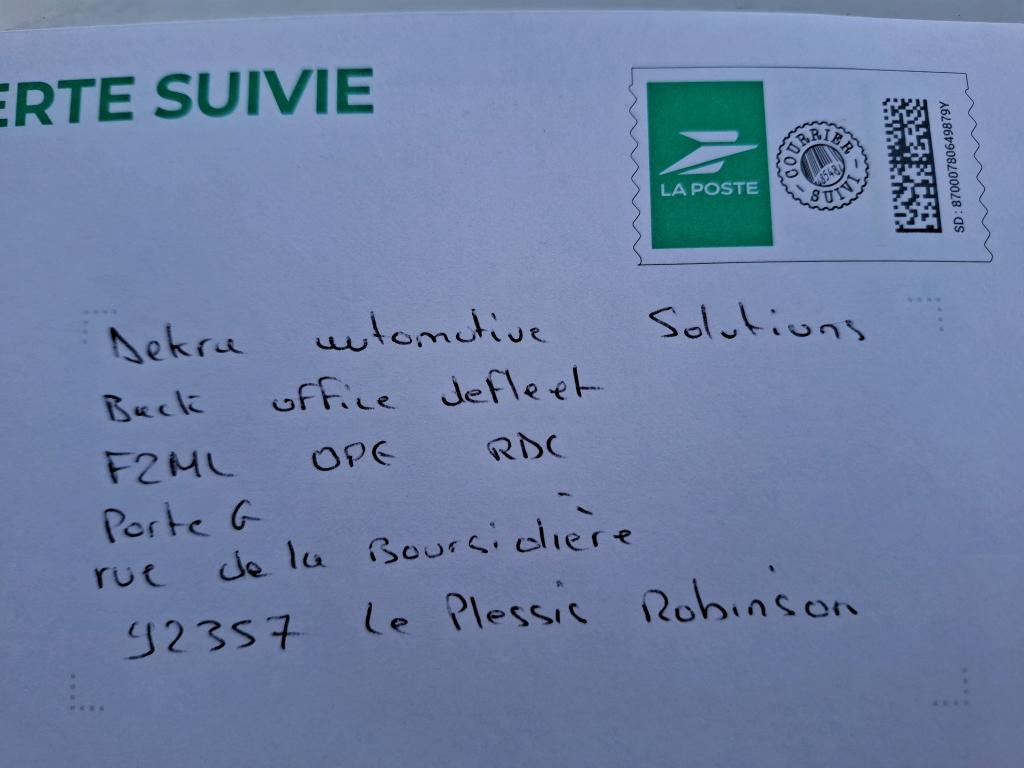 ERTE SUIVIE
LA POSTE
COURRIER SUIVI
SD : 87000780649879Y
Dekra automotive Solutions
Back office defleet
F2ML OPE RDC
Porte G
rue de la Boursidière
92357 Le Plessis Robinson